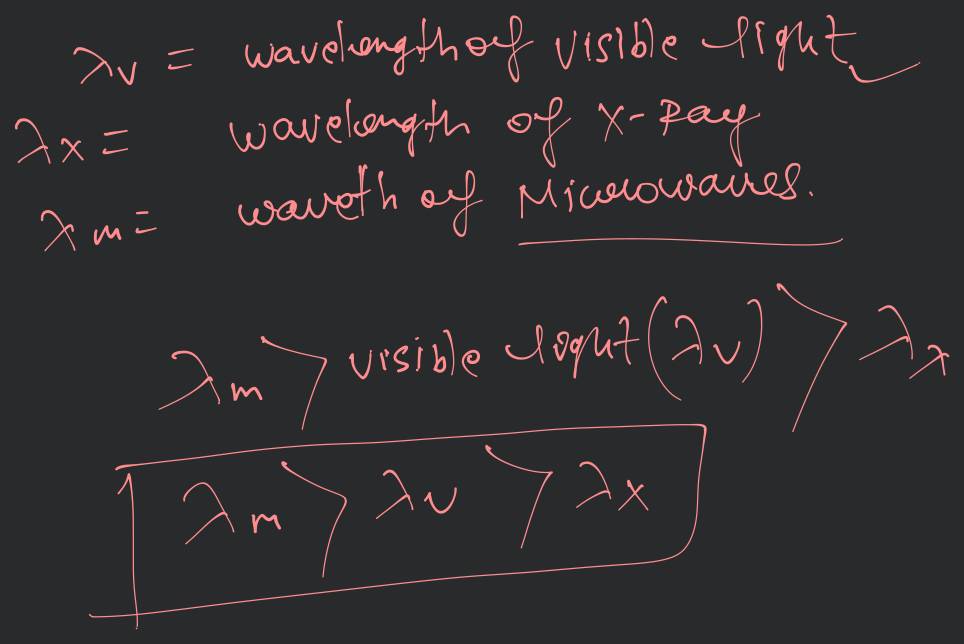 λv = wavelength of visible light
λx = wavelength of X-Ray
λm = waveth of Microwaves.
λm > visible light (λv) > λx
λm > λv > λx